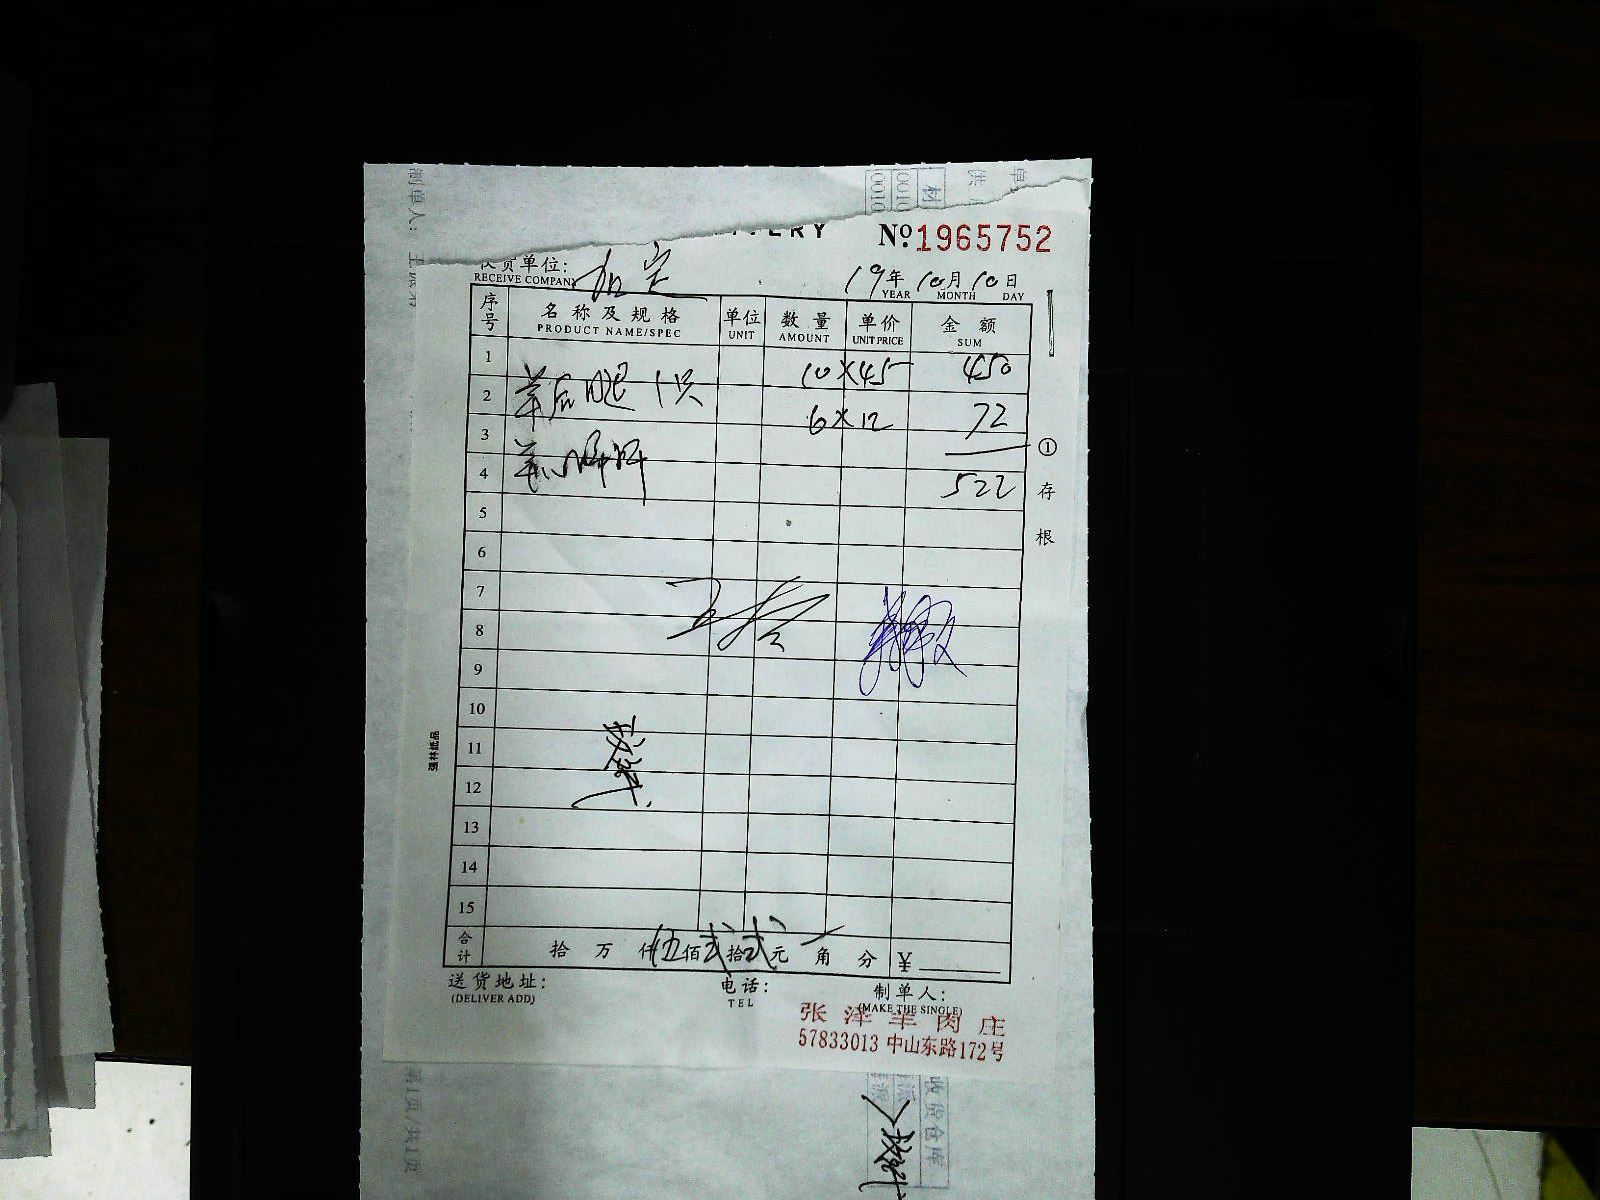 No 1965752
收货单位: 加定
RECEIVE COMPANY
19年 10月 10日
YEAR MONTH DAY
序号 名称及规格 单位 数量 单价 金额
PRODUCT NAME/SPEC UNIT AMOUNT UNIT PRICE SUM
1 10×45 450
2 羊后腿1只 6×12 72
3
4 522
5
6
7
8
9
10
11
12
13
14
15
合计 拾 万 仟伍佰贰拾贰元 角 分 ¥
送货地址: 电话: 制单人:
(DELIVER ADD) TEL (MAKE THE SINGLE)
张泽羊肉庄
57833013 中山东路172号
①存根
强林纸品
制单人:
第1页/共1页
收货仓库